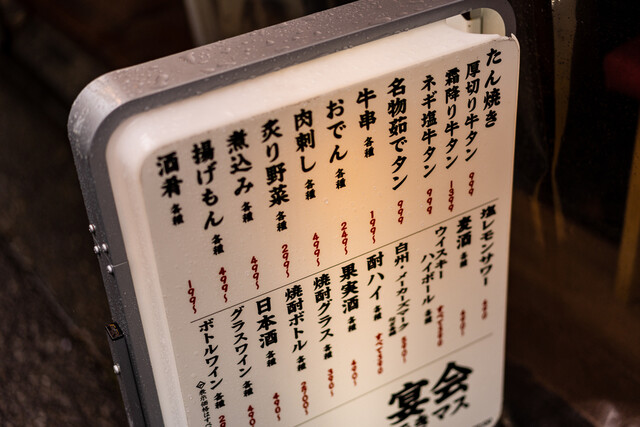 たん焼き
厚切り牛タン 999
霜降り牛タン 1399
ネギ塩牛タン 999
名物茹でタン 999
牛串 各種 199〜
おでん 各種 249〜
肉刺し 各種 499〜
炙り野菜 各種 299〜
煮込み 各種 499〜
揚げもん 各種 499〜
酒肴 各種 199〜
塩レモンサワー
麦酒 各種
ウイスキーハイボール 各種
白州・メーカーズマーク
酎ハイ 各種
果実酒 各種 490〜
焼酎グラス 各種 390〜
焼酎ボトル 各種 2700〜
日本酒 各種 490〜
グラスワイン 各種 490〜
ボトルワイン 各種
宴会
マス